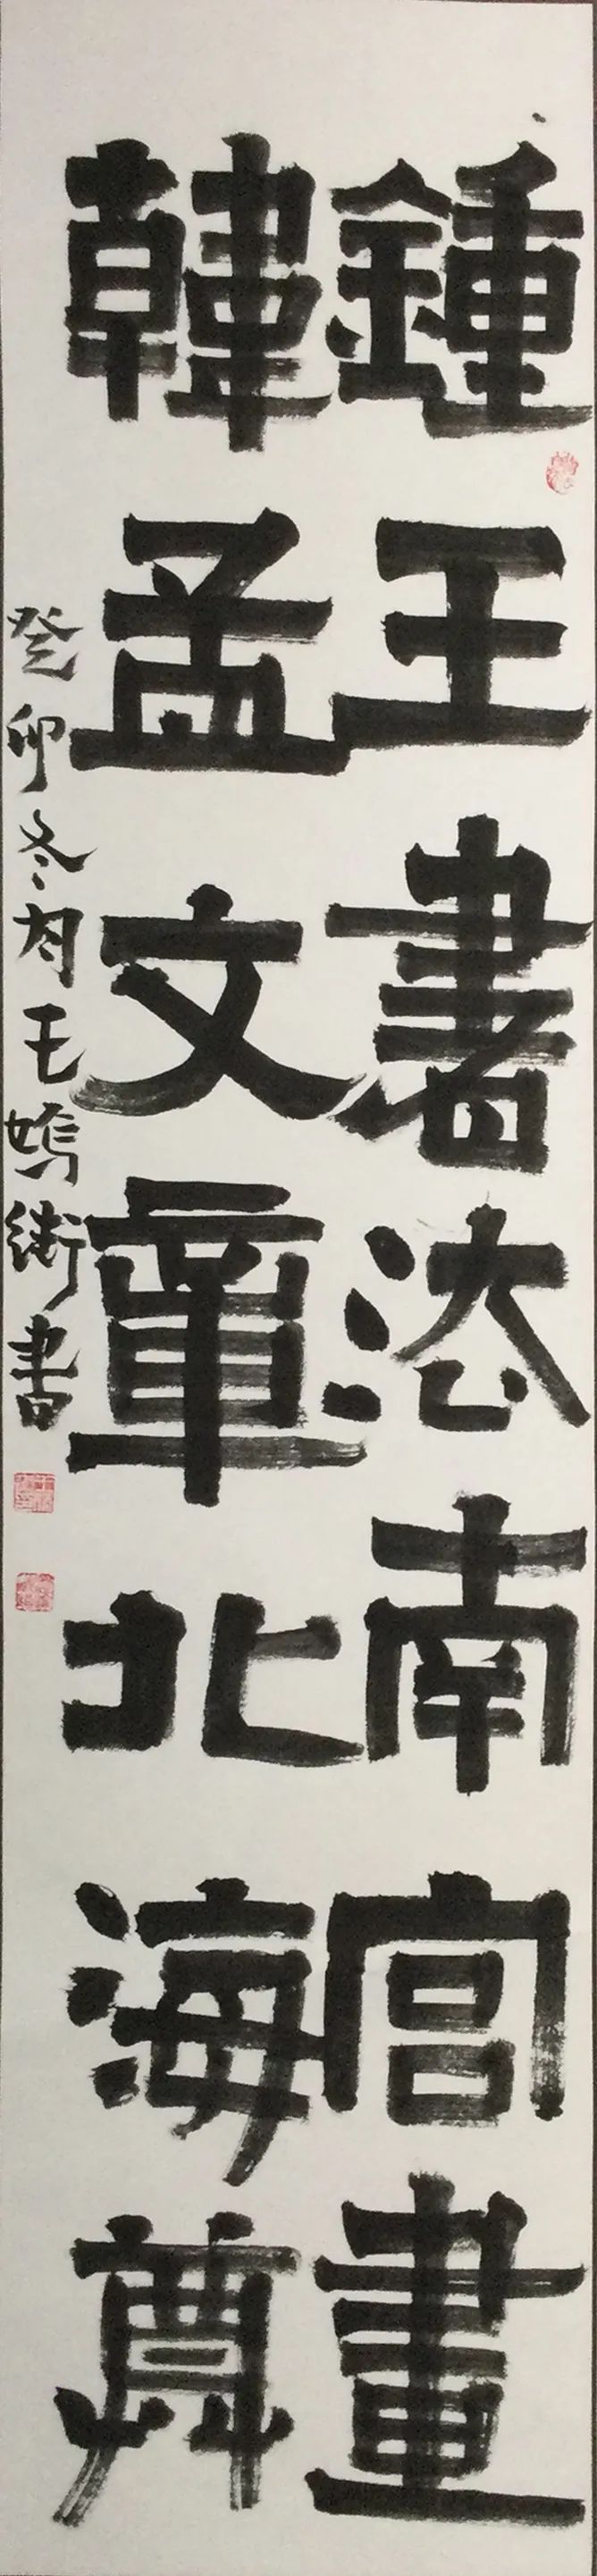 鍾王書法南宫畫
韓孟文章北海尊
癸卯冬月王嫣衛書